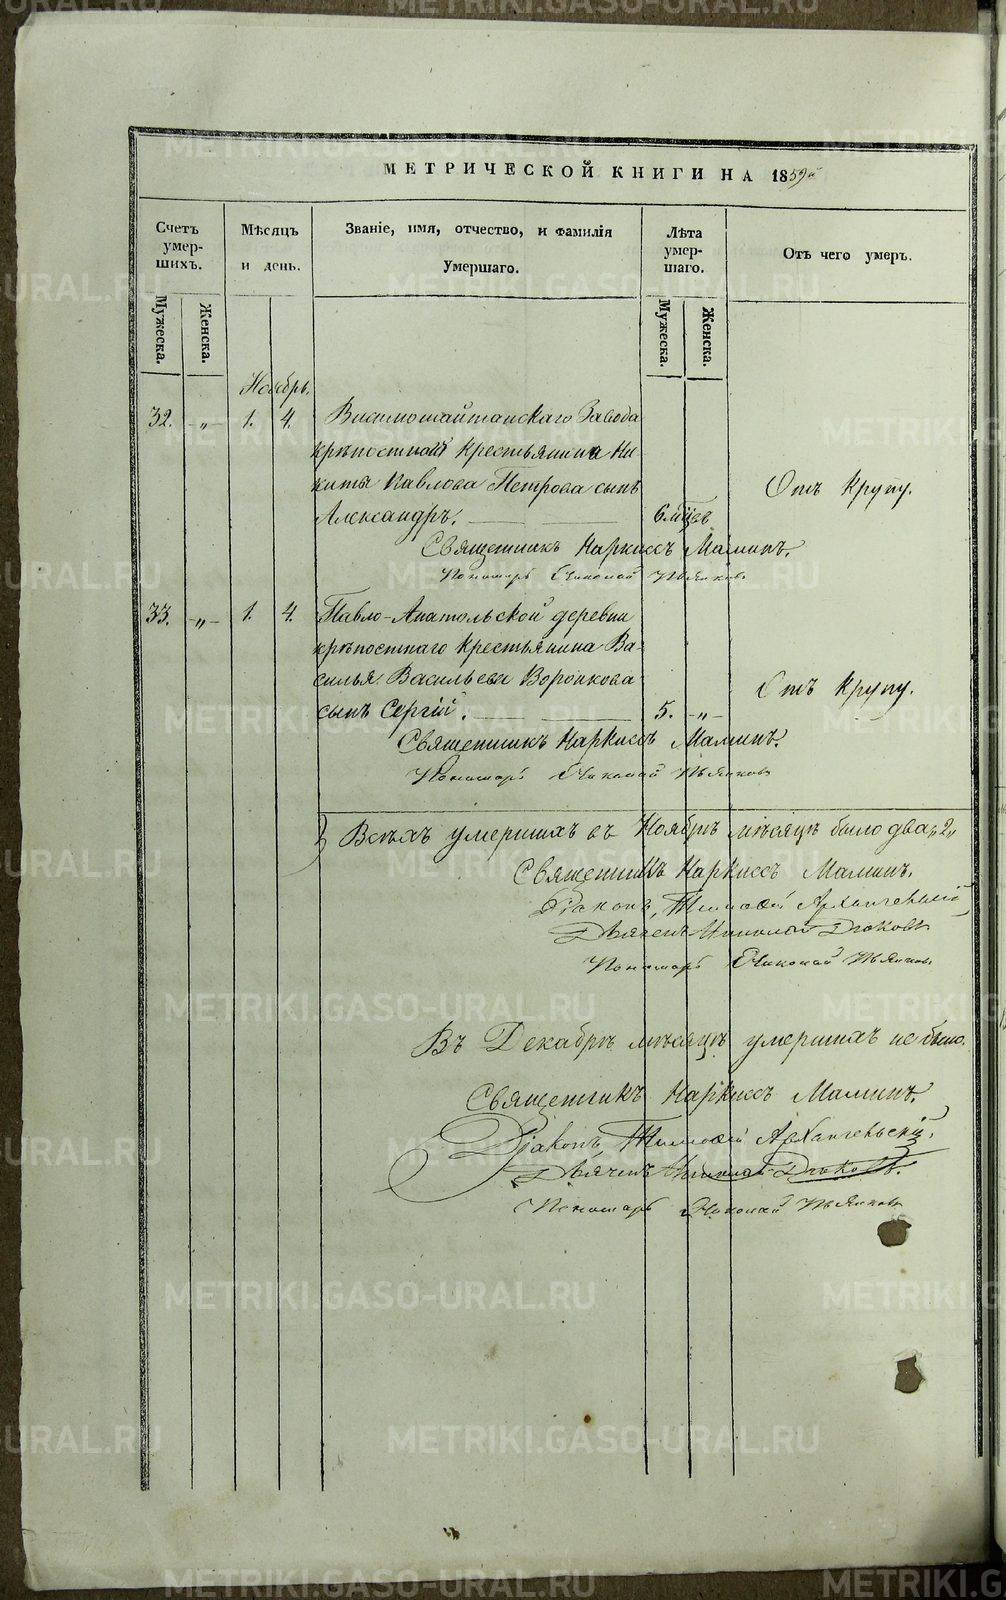 МЕТРИЧЕСКОЙ КНИГИ НА 1859й
Счетъ умер-шихъ.
Мѣсяцъ и день.
Званіе, имя, отчество, и фамилія Умершаго.
Лѣта умер-шаго.
Отъ чего умеръ.
Мужеска.
Женска.
Мужеска.
Женска.
Ноябрь.
32. -„- 1. 4. Висимошайтанскаго Завода
крѣпостнаго Крестьянина Ни-
киты Павлова Петрова сынъ
Александръ. 6 мцев
Отъ крупу.
Священникъ Наркиссъ Маминъ.
Пономарь Николай
33. -„- 1. 4. Павло-Анатольской деревни
крѣпостнаго Крестьянина Ва-
силья Васильева Воронкова
сынъ Сергій. 5. -„-
Отъ крупу.
Священникъ Наркиссъ Маминъ.
Пономарь Николай
Всѣхъ умершихъ въ Ноябрѣ мѣсяцѣ было два „2„
Священникъ Наркиссъ Маминъ.
Діаконъ, Тимофей Архангельскій
Дьячекъ Николай Дьяковъ
Пономарь Николай
Въ Декабрѣ мѣсяцѣ умершихъ не было.
Священникъ Наркиссъ Маминъ.
Діаконъ, Тимофей Архангельскій.
Дьячекъ Николай Дьяковъ.
Пономарь Николай
METRIKI.GASO-URAL.RU